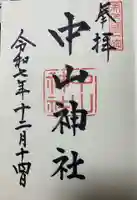 奉拝
中山神社
令和七年十二月十四日